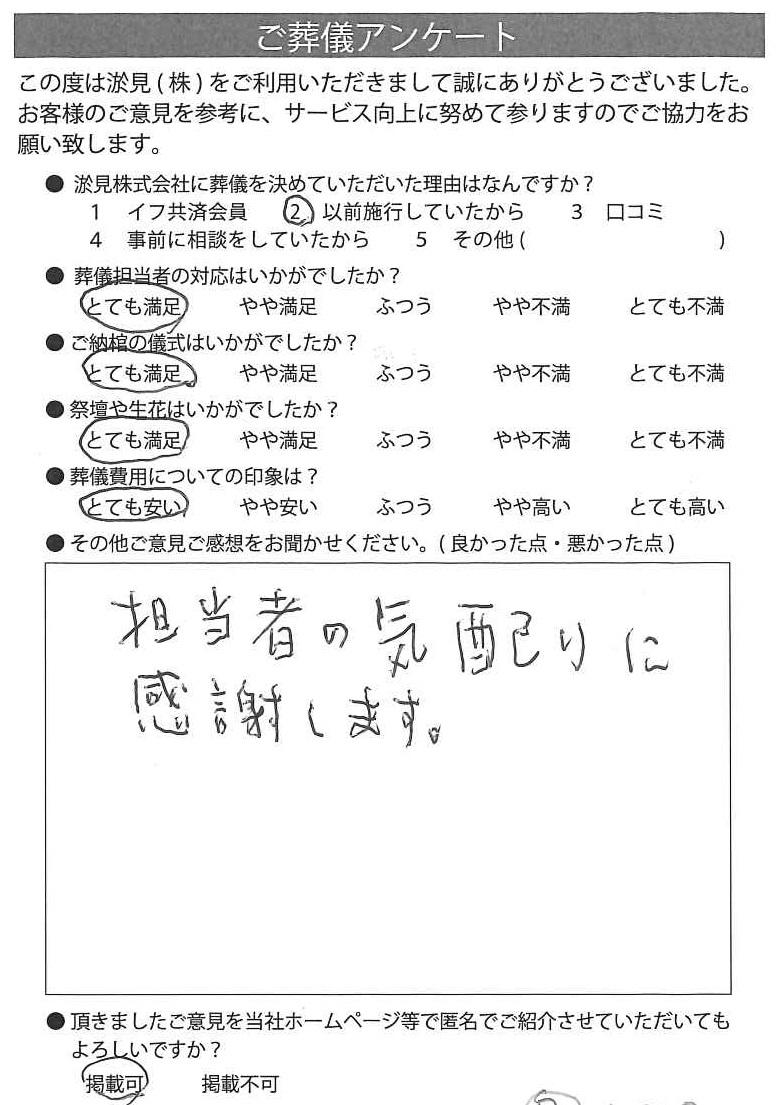 ご葬儀アンケート
この度は淤見(株)をご利用いただきまして誠にありがとうございました。
お客様のご意見を参考に、サービス向上に努めて参りますのでご協力をお
願い致します。
● 淤見株式会社に葬儀を決めていただいた理由はなんですか？
1 イフ共済会員 2 以前施行していたから 3 口コミ
4 事前に相談をしていたから 5 その他( )
● 葬儀担当者の対応はいかがでしたか？
とても満足 やや満足 ふつう やや不満 とても不満
● ご納棺の儀式はいかがでしたか？
とても満足 やや満足 ふつう やや不満 とても不満
● 祭壇や生花はいかがでしたか？
とても満足 やや満足 ふつう やや不満 とても不満
● 葬儀費用についての印象は？
とても安い やや安い ふつう やや高い とても高い
● その他ご意見ご感想をお聞かせください。(良かった点・悪かった点)
担当者の気配りに
感謝します。
● 頂きましたご意見を当社ホームページ等で匿名でご紹介させていただいても
よろしいですか？
掲載可 掲載不可